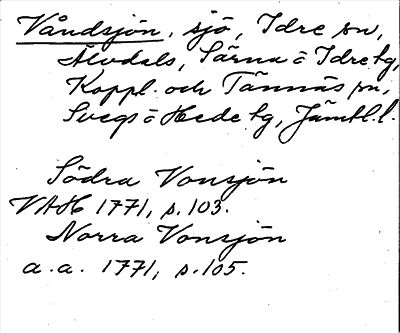 Våndsjön, sjö, Idre sn,
Älvdals, Särna o Idre tg,
Koppl. och Tännäs sn,
Svegs o Hede tg, Jämtl. l.
Södra Vonsjön
VAH 1771, s. 103.
Norra Vonsjön
a. a. 1771, s. 105.